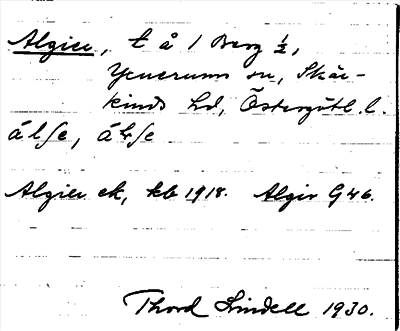 Algier, t å 1 Berg ½,
Yxnerums sn, Skär-
kinds hd, Östergötl. l.
Algier ek, kb 1918. Algir G 46.
Thord Lindell 1930.